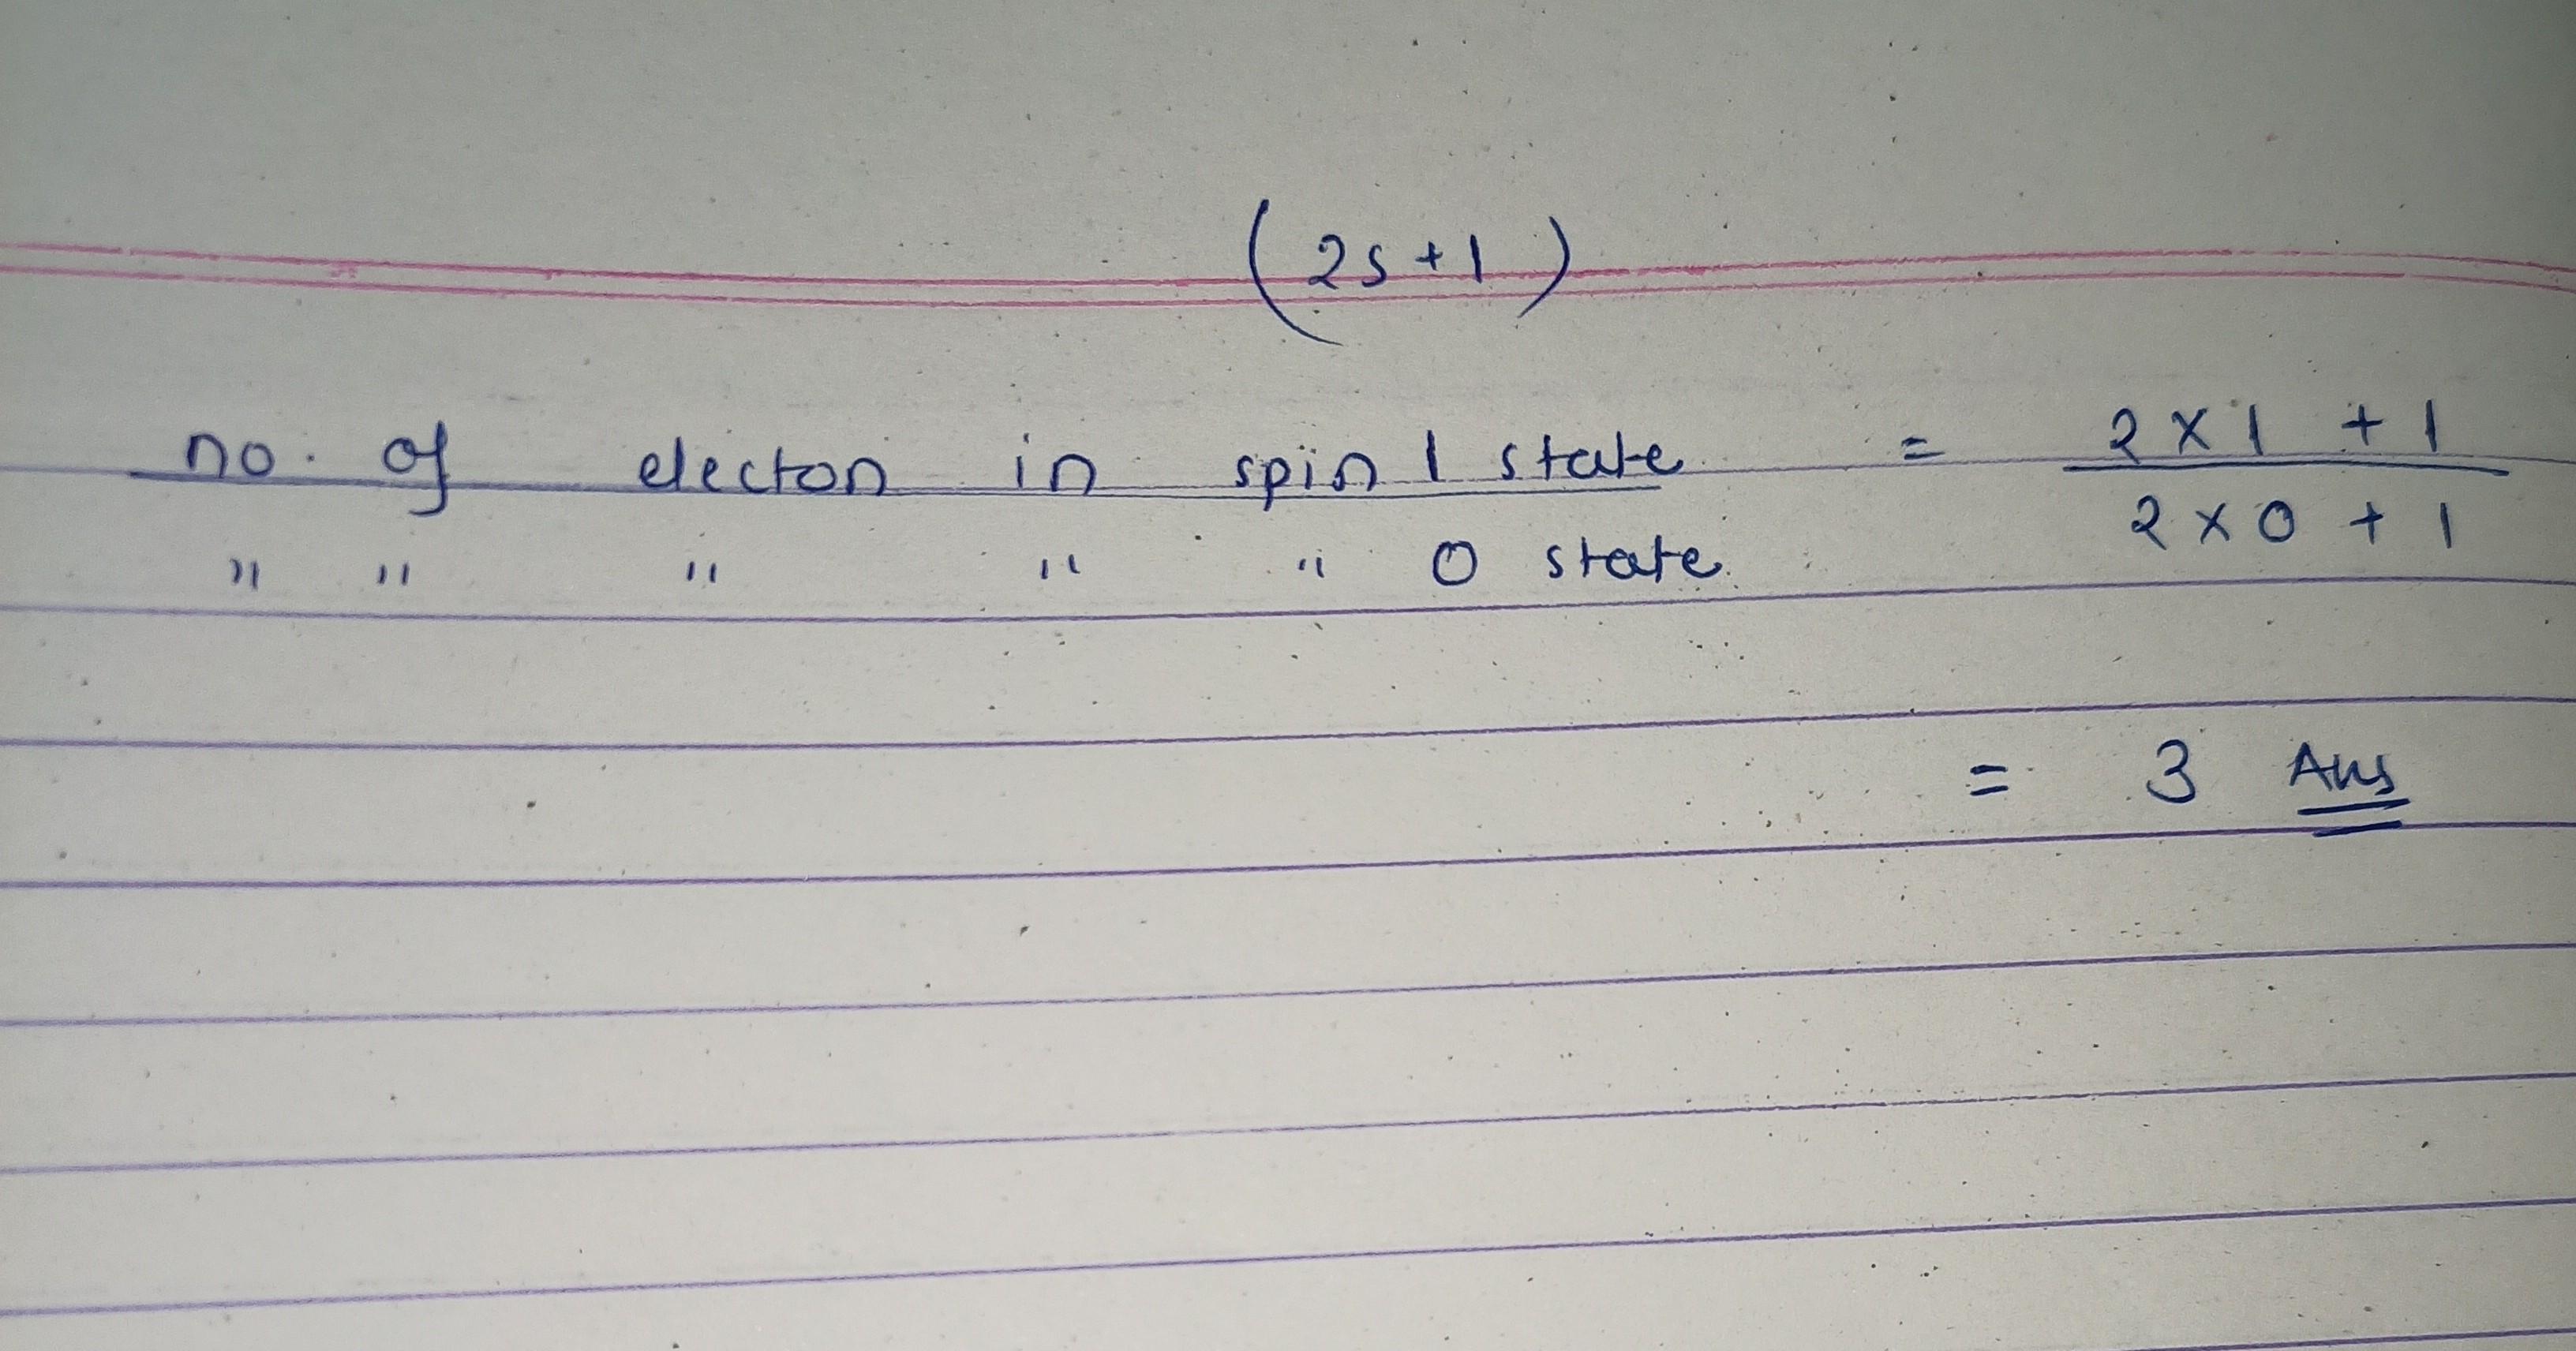 (2s+1)
no. of electon in spin 1 state = 2 × 1 + 1
" " " " " 0 state 2 × 0 + 1
= 3 Ans